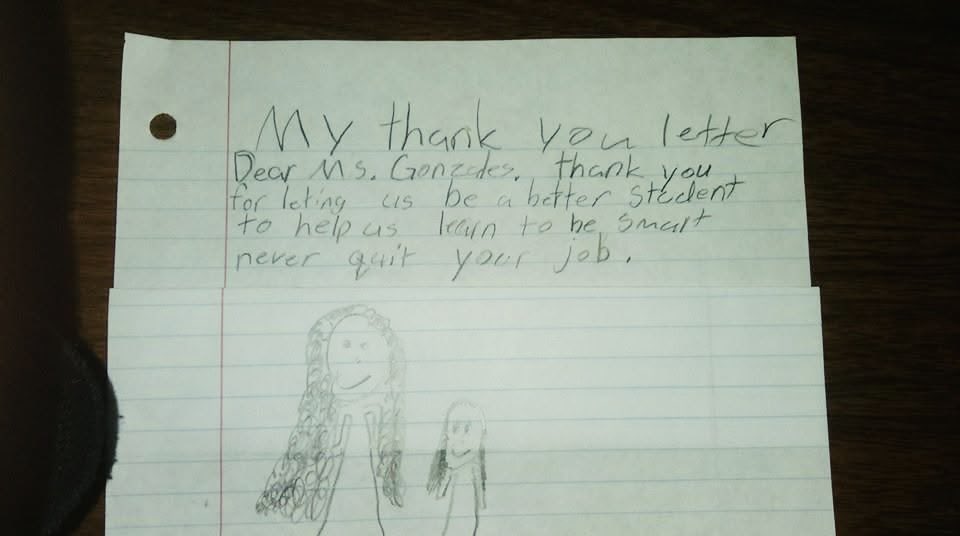 My thank you letter
Dear Ms. Gonzales. thank you
for leting us be a better student
to help us learn to be smart
never quit your job.